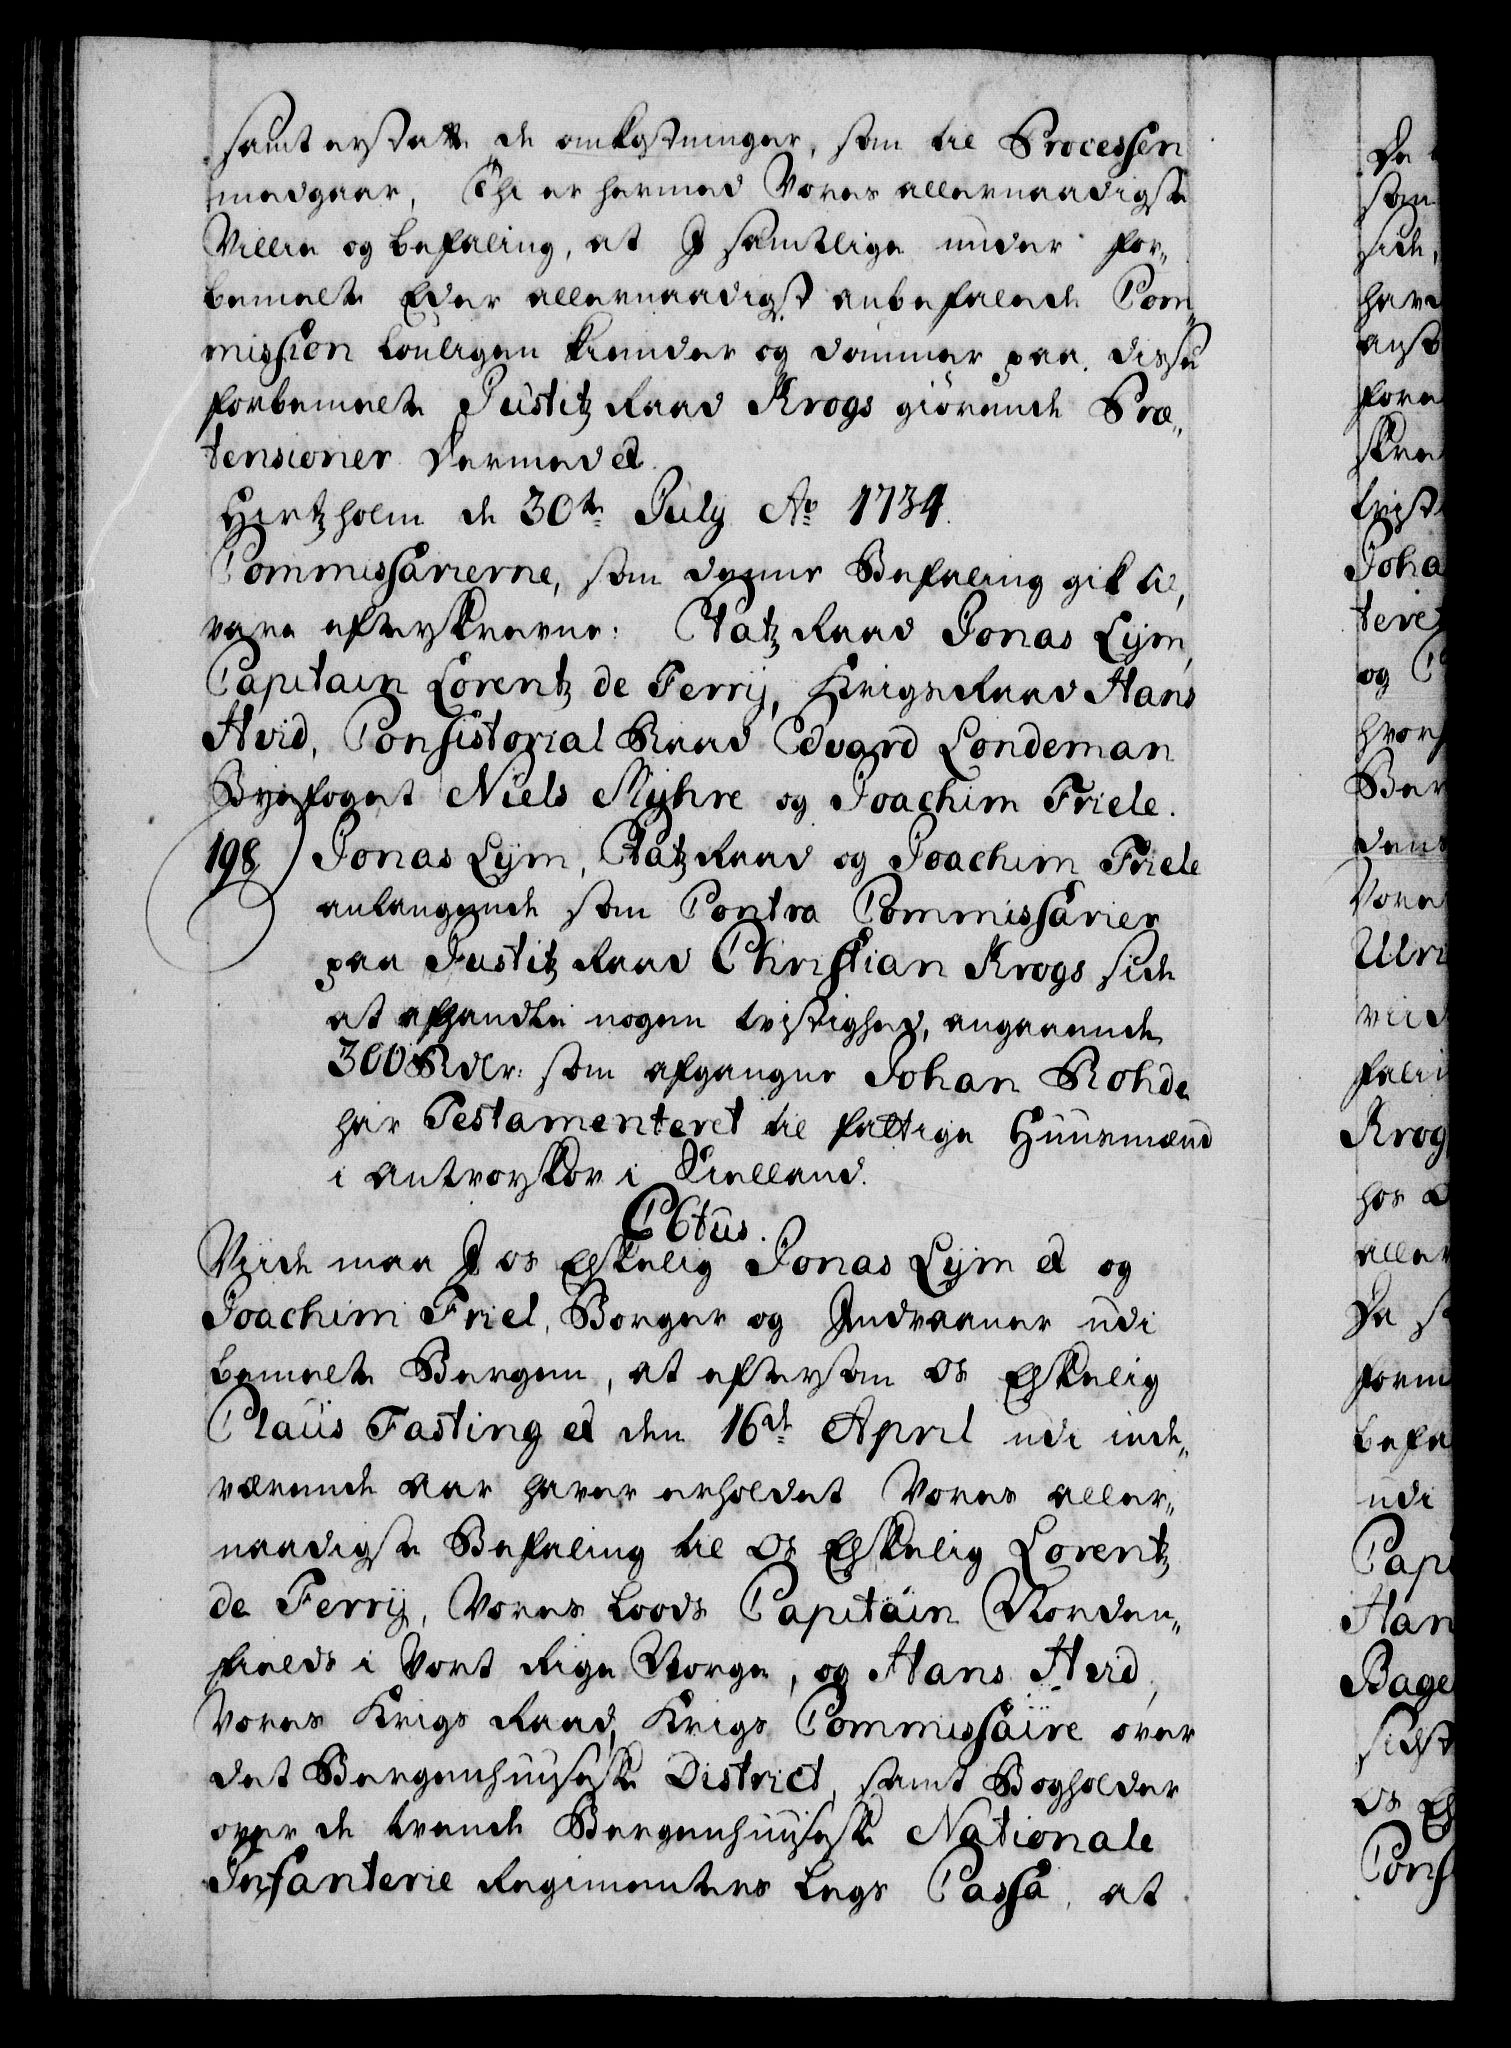 samt erstatte de omkostninger, som til Processen
medgaar, Thi er hermed Vores allernaadigste
Villie og befaling, at I samtlige under for„
bemelte Eder allernaadigst anbefalede Com„
mission louligen kiender og dømmer paa disse
forbemelte Justitz Raad Krogs giørende Præ„
tensioner. Dermed etc.
Hirtzholm de 30te July Ao 1734.
Commissarierne, som denne Befaling gik til,
vare efterskrevne: Etatz Raad Jonas Lijm,
Capitain Lorentz de Ferry, Krigs Raad Hans
Hvid, Consistorial Raad Edvard Londeman
Byefoget Niels Myhre og Joachim Friele.
198) Jonas Lijm, Etatz Raad og Joachim Friele
anlangende som Contra Commissarier
paa Justitz Raad Christian Krogs side
at afhandle nogen tvistighed, angaaende
300 Rdlr: som afgangne Johan Rohde
har Testamenteret til fattige Huusmænd
i Antvorskov i Siælland.
C6tus.
Viide maa I os Elskelig Jonas Lijm etc og
Joachim Friel, Borger og Indvaaner udi
bemelte Bergen, at eftersom os Elskelig
Claus Fasting etc den 16de April udi inde„
værende Aar haver erholdet Vores aller„
naadigste Befaling til Os Elskelig Lorentz
de Ferry, Vores Lods Capitain Norden„
fields i Vort Rige Norge, og Hans Hvid,
Vores Krigs Raad, Krigs Commissaire over
det Bergenhuusiske District, samt Bogholder
over de tvende Bergenhuusiske Nationale
Infanterie Regimenters Legs Cassa, at